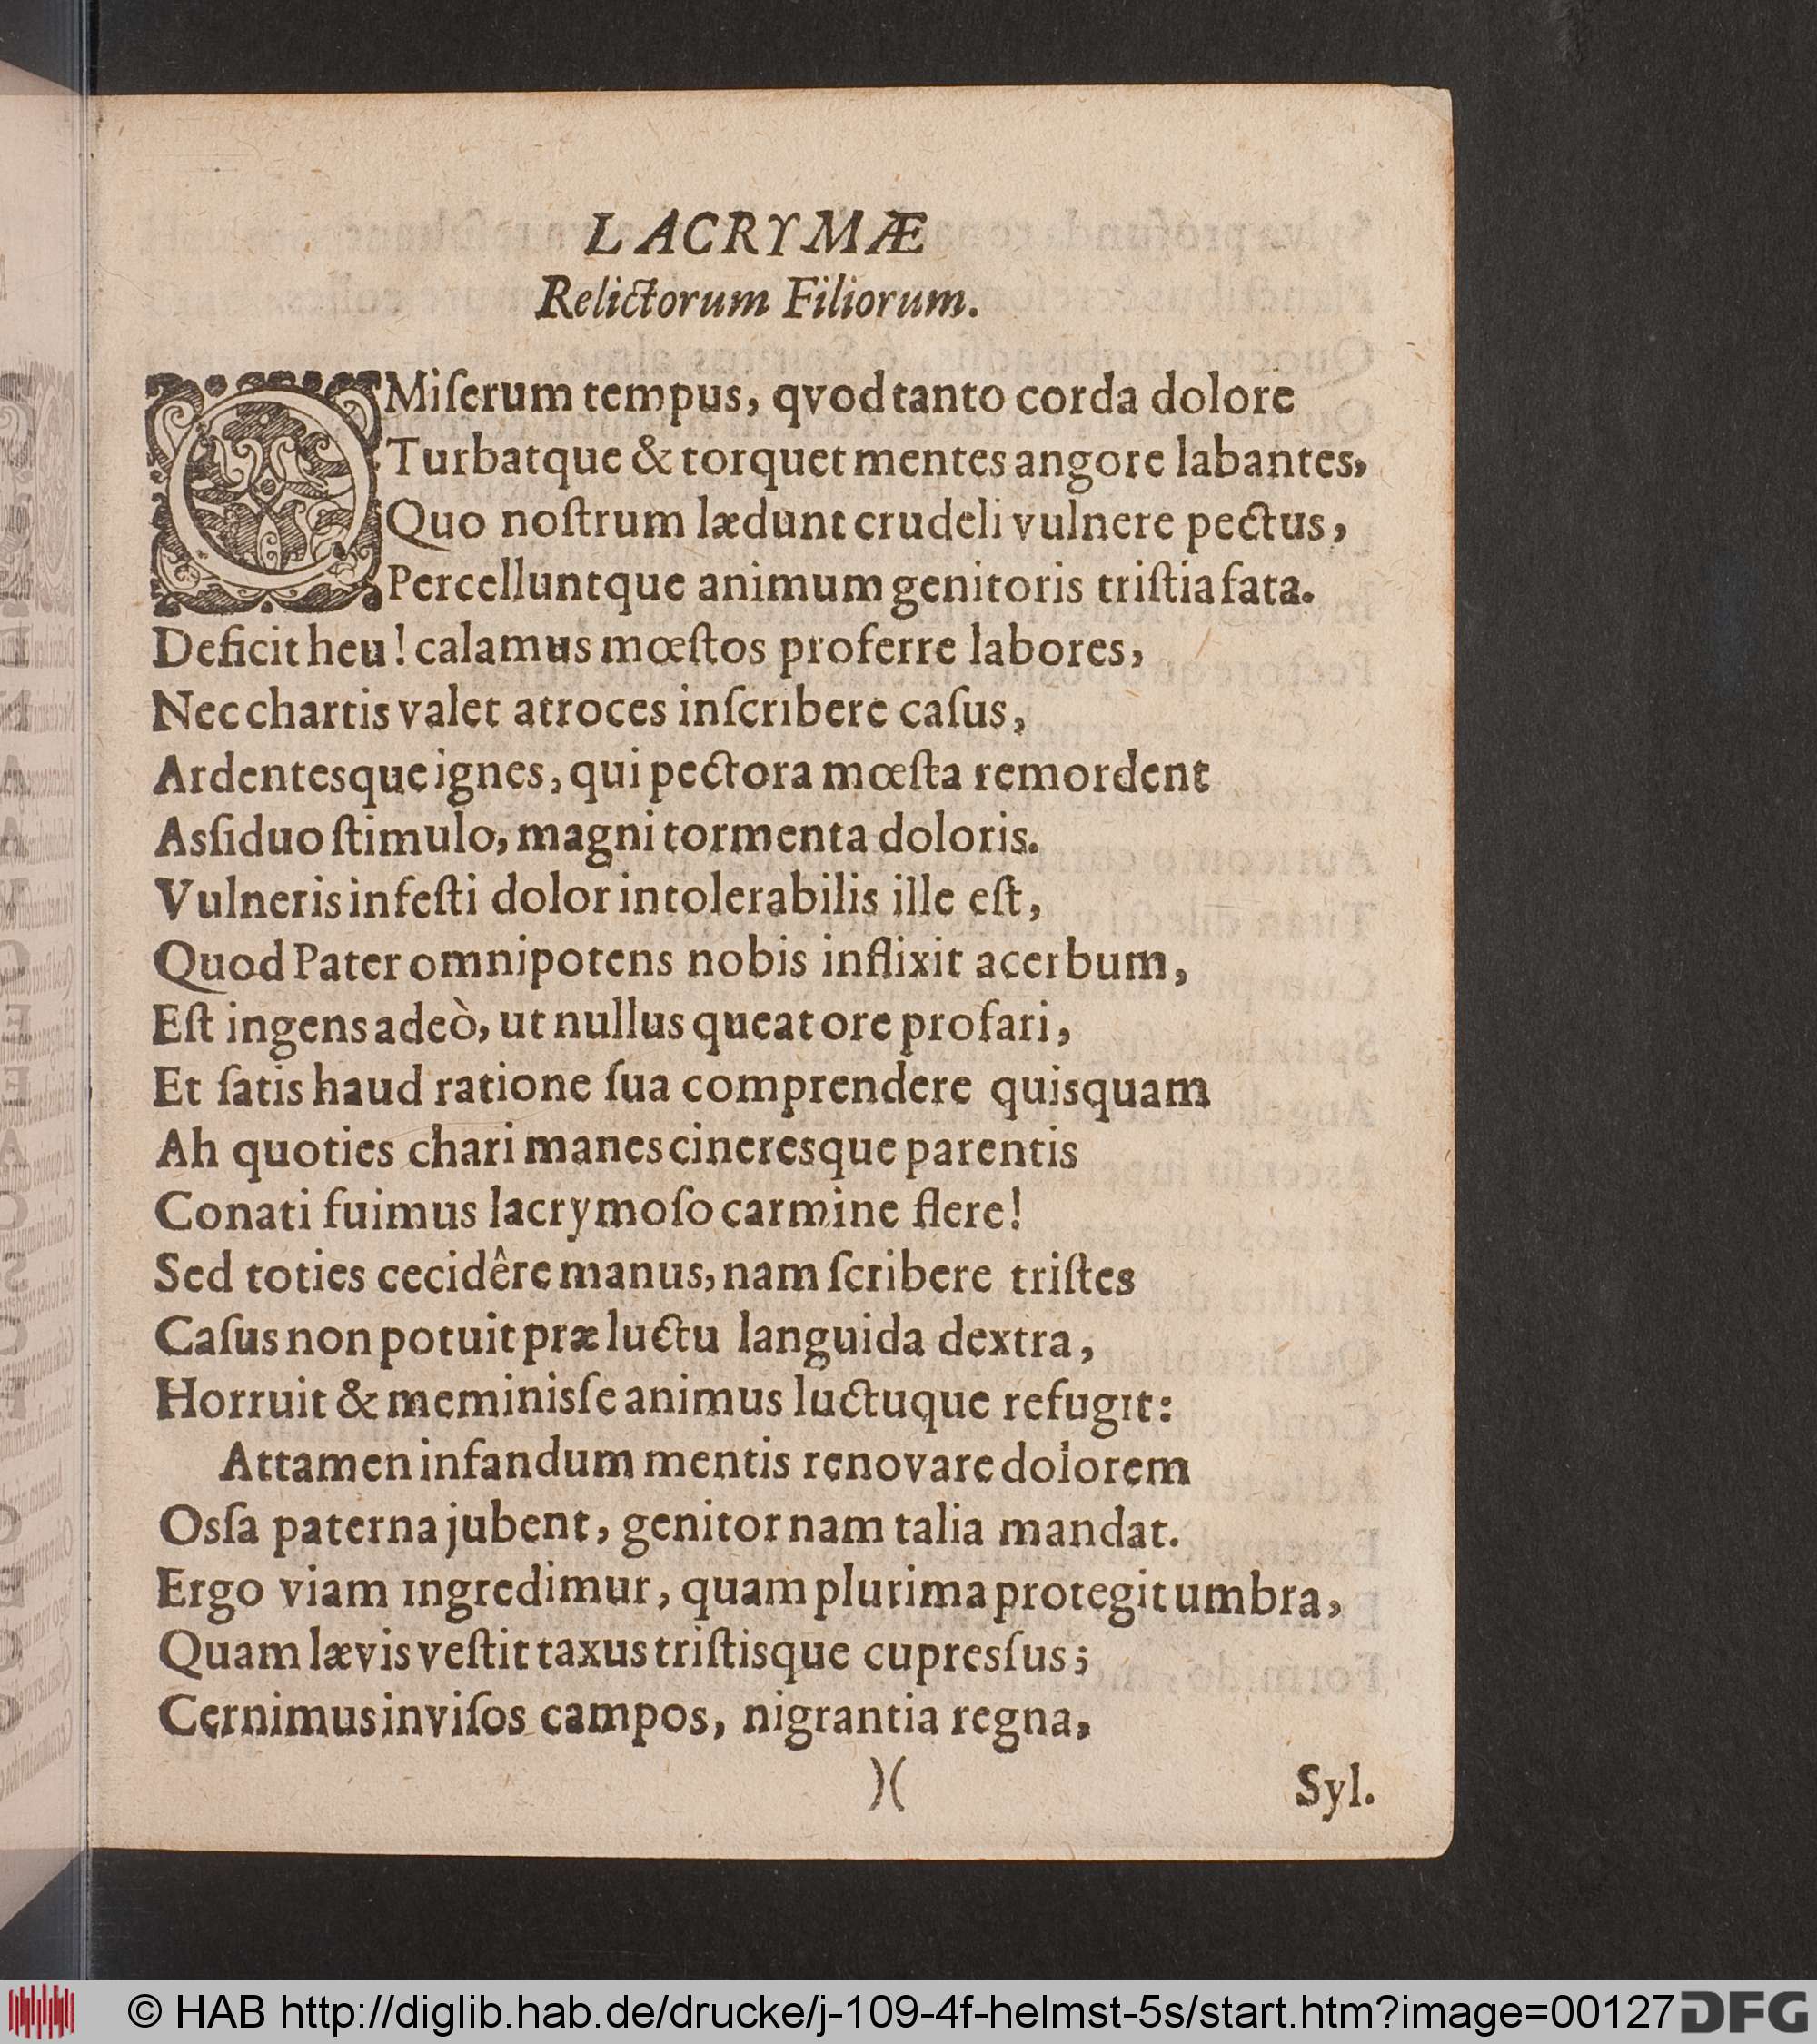 LACRYMÆ
Relictorum Filiorum.
O Miſerum tempus, qvod tanto corda dolore
Turbatque & torquet mentes angore labantes,
Quo noſtrum lædunt crudeli vulnere pectus,
Percelluntque animum genitoris triſtia fata.
Deficit heu! calamus mœſtos proferre labores,
Nec chartis valet atroces inſcribere caſus,
Ardentesque ignes, qui pectora mœſta remordent
Asſiduo ſtimulo, magni tormenta doloris.
Vulneris infeſti dolor intolerabilis ille eſt,
Quod Pater omnipotens nobis inflixit acerbum,
Eſt ingens adeò, ut nullus queat ore profari,
Et ſatis haud ratione ſua comprendere quisquam
Ah quoties chari manes cineresque parentis
Conati fuimus lacrymoſo carmine flere!
Sed toties cecidêre manus, nam ſcribere triſtes
Caſus non potuit præ luctu languida dextra,
Horruit & meminisſe animus luctuque refugit:
Attamen infandum mentis renovare dolorem
Osſa paterna jubent, genitor nam talia mandat.
Ergo viam ingredimur, quam plurima protegit umbra,
Quam lævis veſtit taxus triſtisque cupresſus;
Cernimus inviſos campos, nigrantia regna,
)( Syl.
© HAB http://diglib.hab.de/drucke/j-109-4f-helmst-5s/start.htm?image=00127 DFG